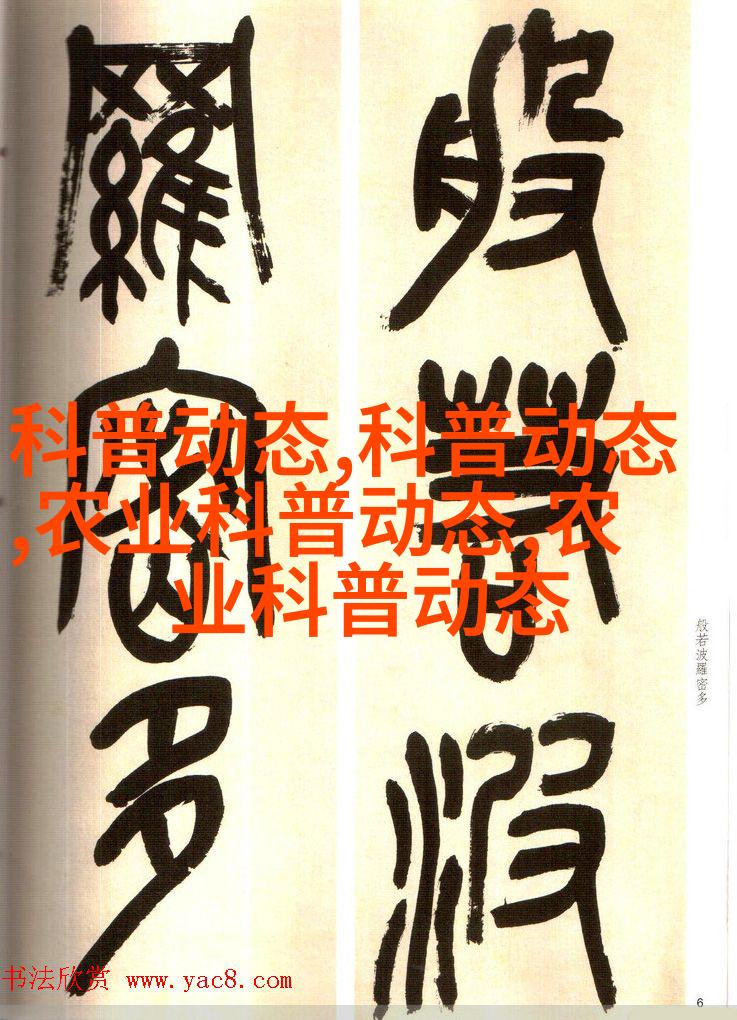 般若波
羅密多
科普动态,科普动态
,农业科普动态,农
业科普动态
般若波羅密多
书法欣赏 www.yac8.com
6